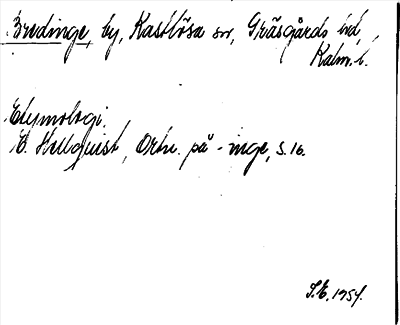 Bredinge, by, Kastlösa sn, Gräsgårds hd,
Kalm. l.
Etymologi.
E. Hellquist, Ortn. på -inge, s. 16.
S.E. 1954.